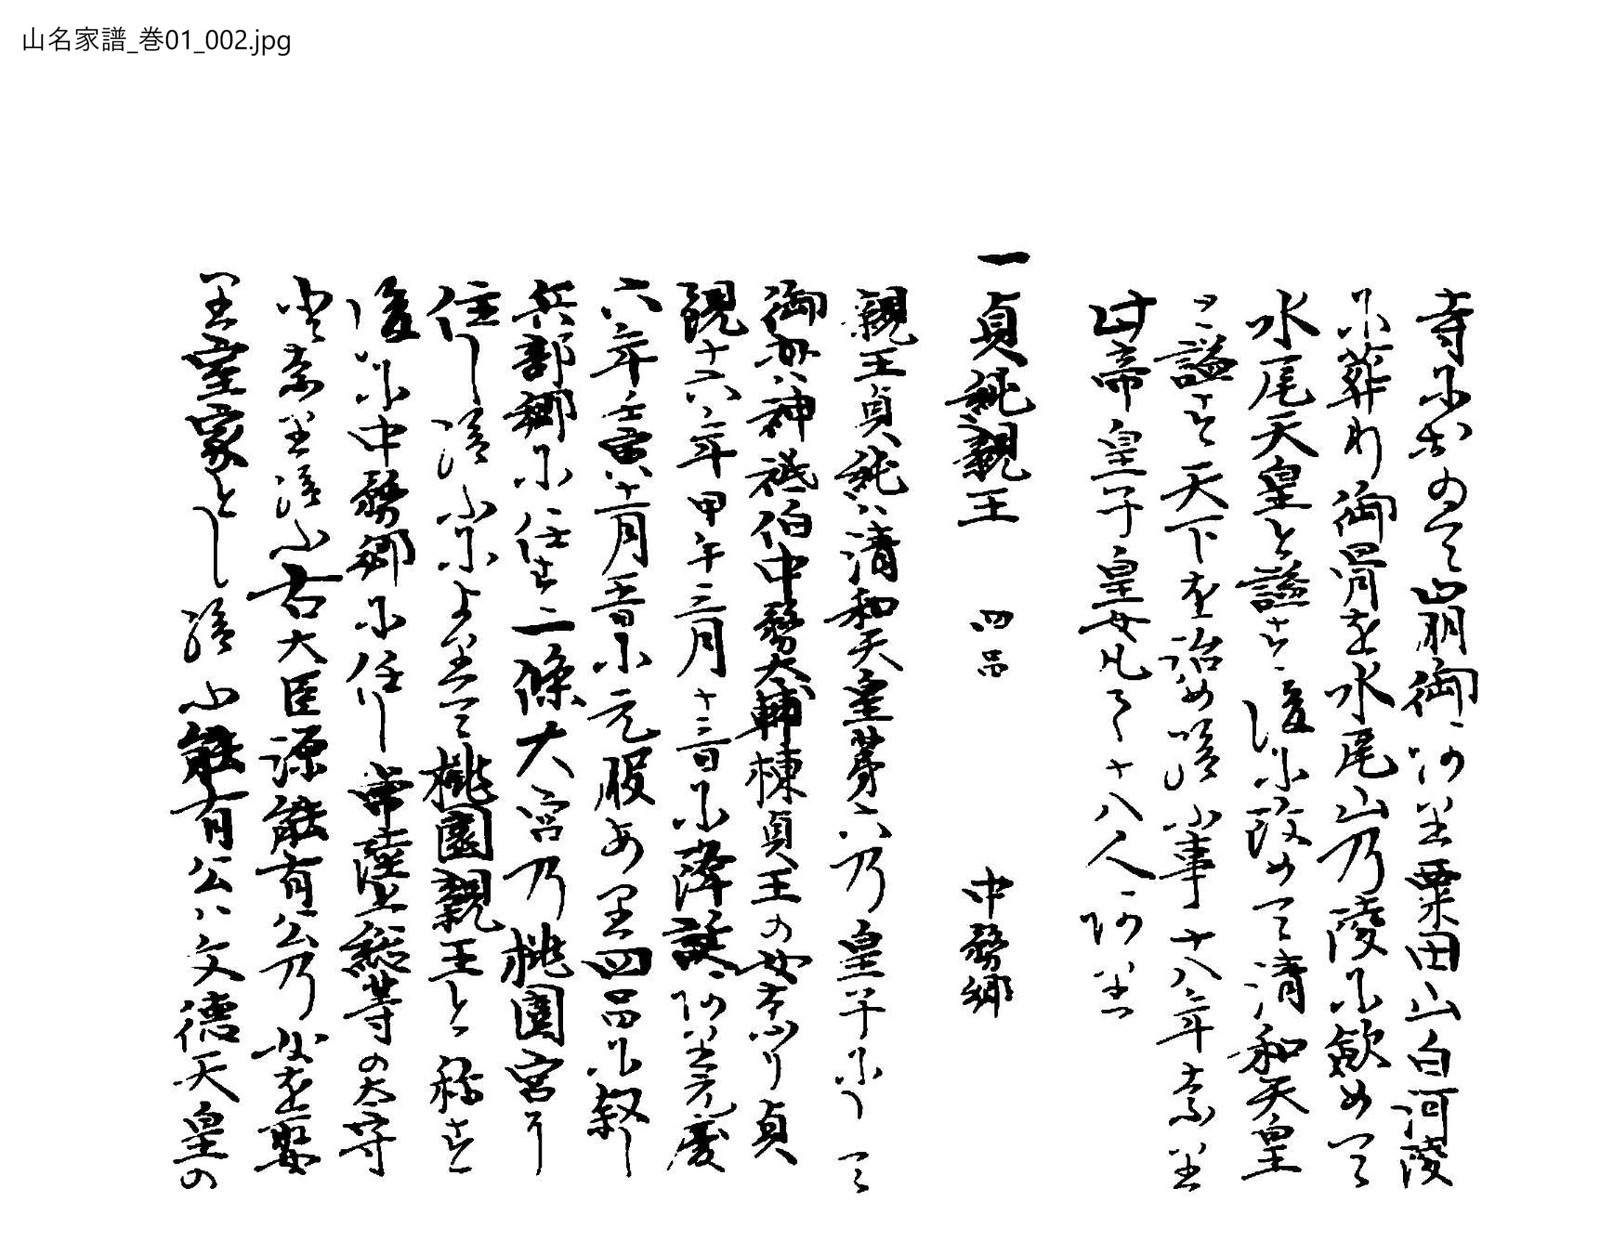 山名家譜_巻01_002.jpg
寺におゐて崩御ありて粟田山白河陵
に葬り御骨を水尾山乃陵に歛めて
水尾天皇と謚す後に改めて清和天皇
と謚す天下を治め給ふ事十八年なり
此帝皇子皇女凡て十八人あり
一貞純親王 四品 中務卿
親王貞純ハ清和天皇第六乃皇子にして
御母ハ神祇伯中務大輔棟貞王の女なり貞
観十六年甲午三月十三日に降誕あり元慶
六年壬寅十二月五日に元服あり四品に叙し
兵部卿に任す二條大宮乃桃園宮に
住し給ふによりて桃園親王と称す
後に中務卿に任し常陸上総等の太守
となり給ふ右大臣源能有公乃女を娶
りて室家とし給ふ能有公ハ文徳天皇の